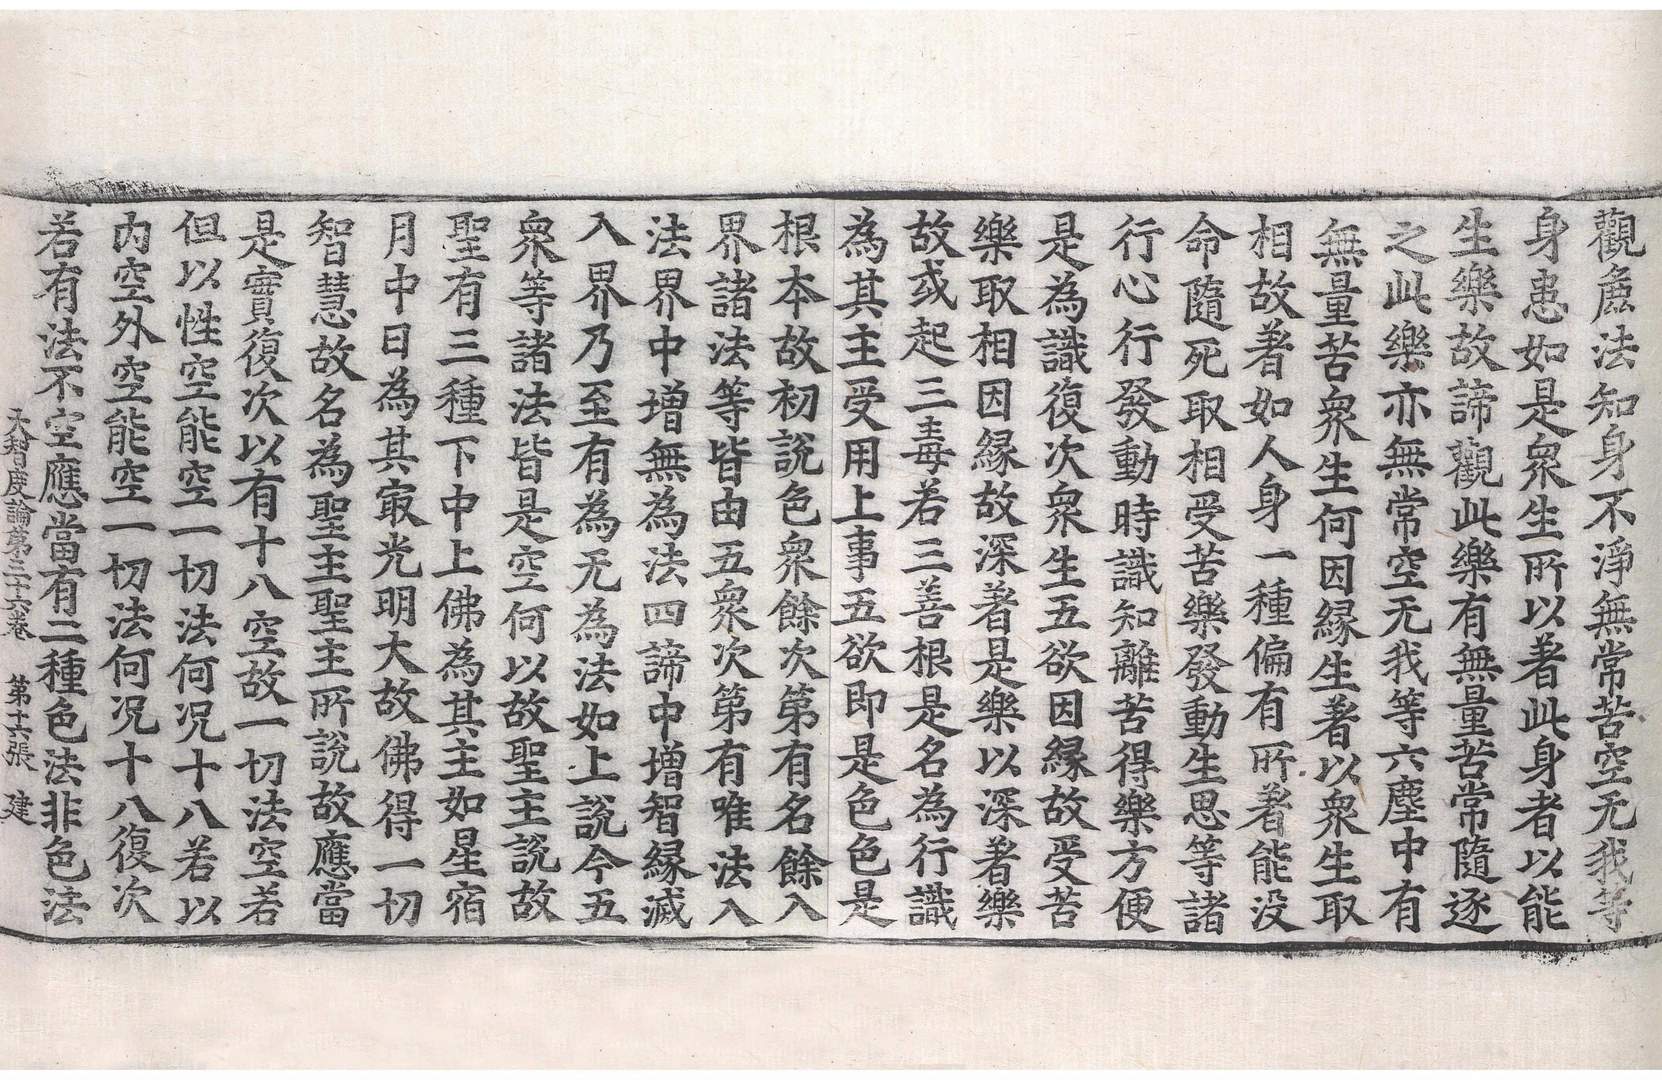 觀麁法知身不淨無常苦空无我等
身患如是衆生所以著此身者以能
生樂故諦觀此樂有無量苦常隨逐
之此樂亦無常空无我等六塵中有
無量苦衆生何因緣生著以衆生取
相故著如人身一種偏有所著能没
命隨死取相受苦樂發動生思等諸
行心行發動時識知離苦得樂方便
是為識復次衆生五欲因緣故受苦
樂取相因緣故深著是樂以深著樂
故或起三毒若三善根是名為行識
為其主受用上事五欲即是色色是
根本故初說色衆餘次第有名餘入
界諸法等皆由五衆次第有唯法入
法界中增無為法四諦中增智緣滅
入界乃至有為无為法如上說今五
衆等諸法皆是空何以故聖主說故
聖有三種下中上佛為其主如星宿
月中日為其冣光明大故佛得一切
智慧故名為聖主聖主所說故應當
是實復次以有十八空故一切法空若
但以性空能空一切法何況十八若以
内空外空能空一切法何況十八復次
若有法不空應當有二種色法非色法
大智度論第三十六卷 第十六張 建